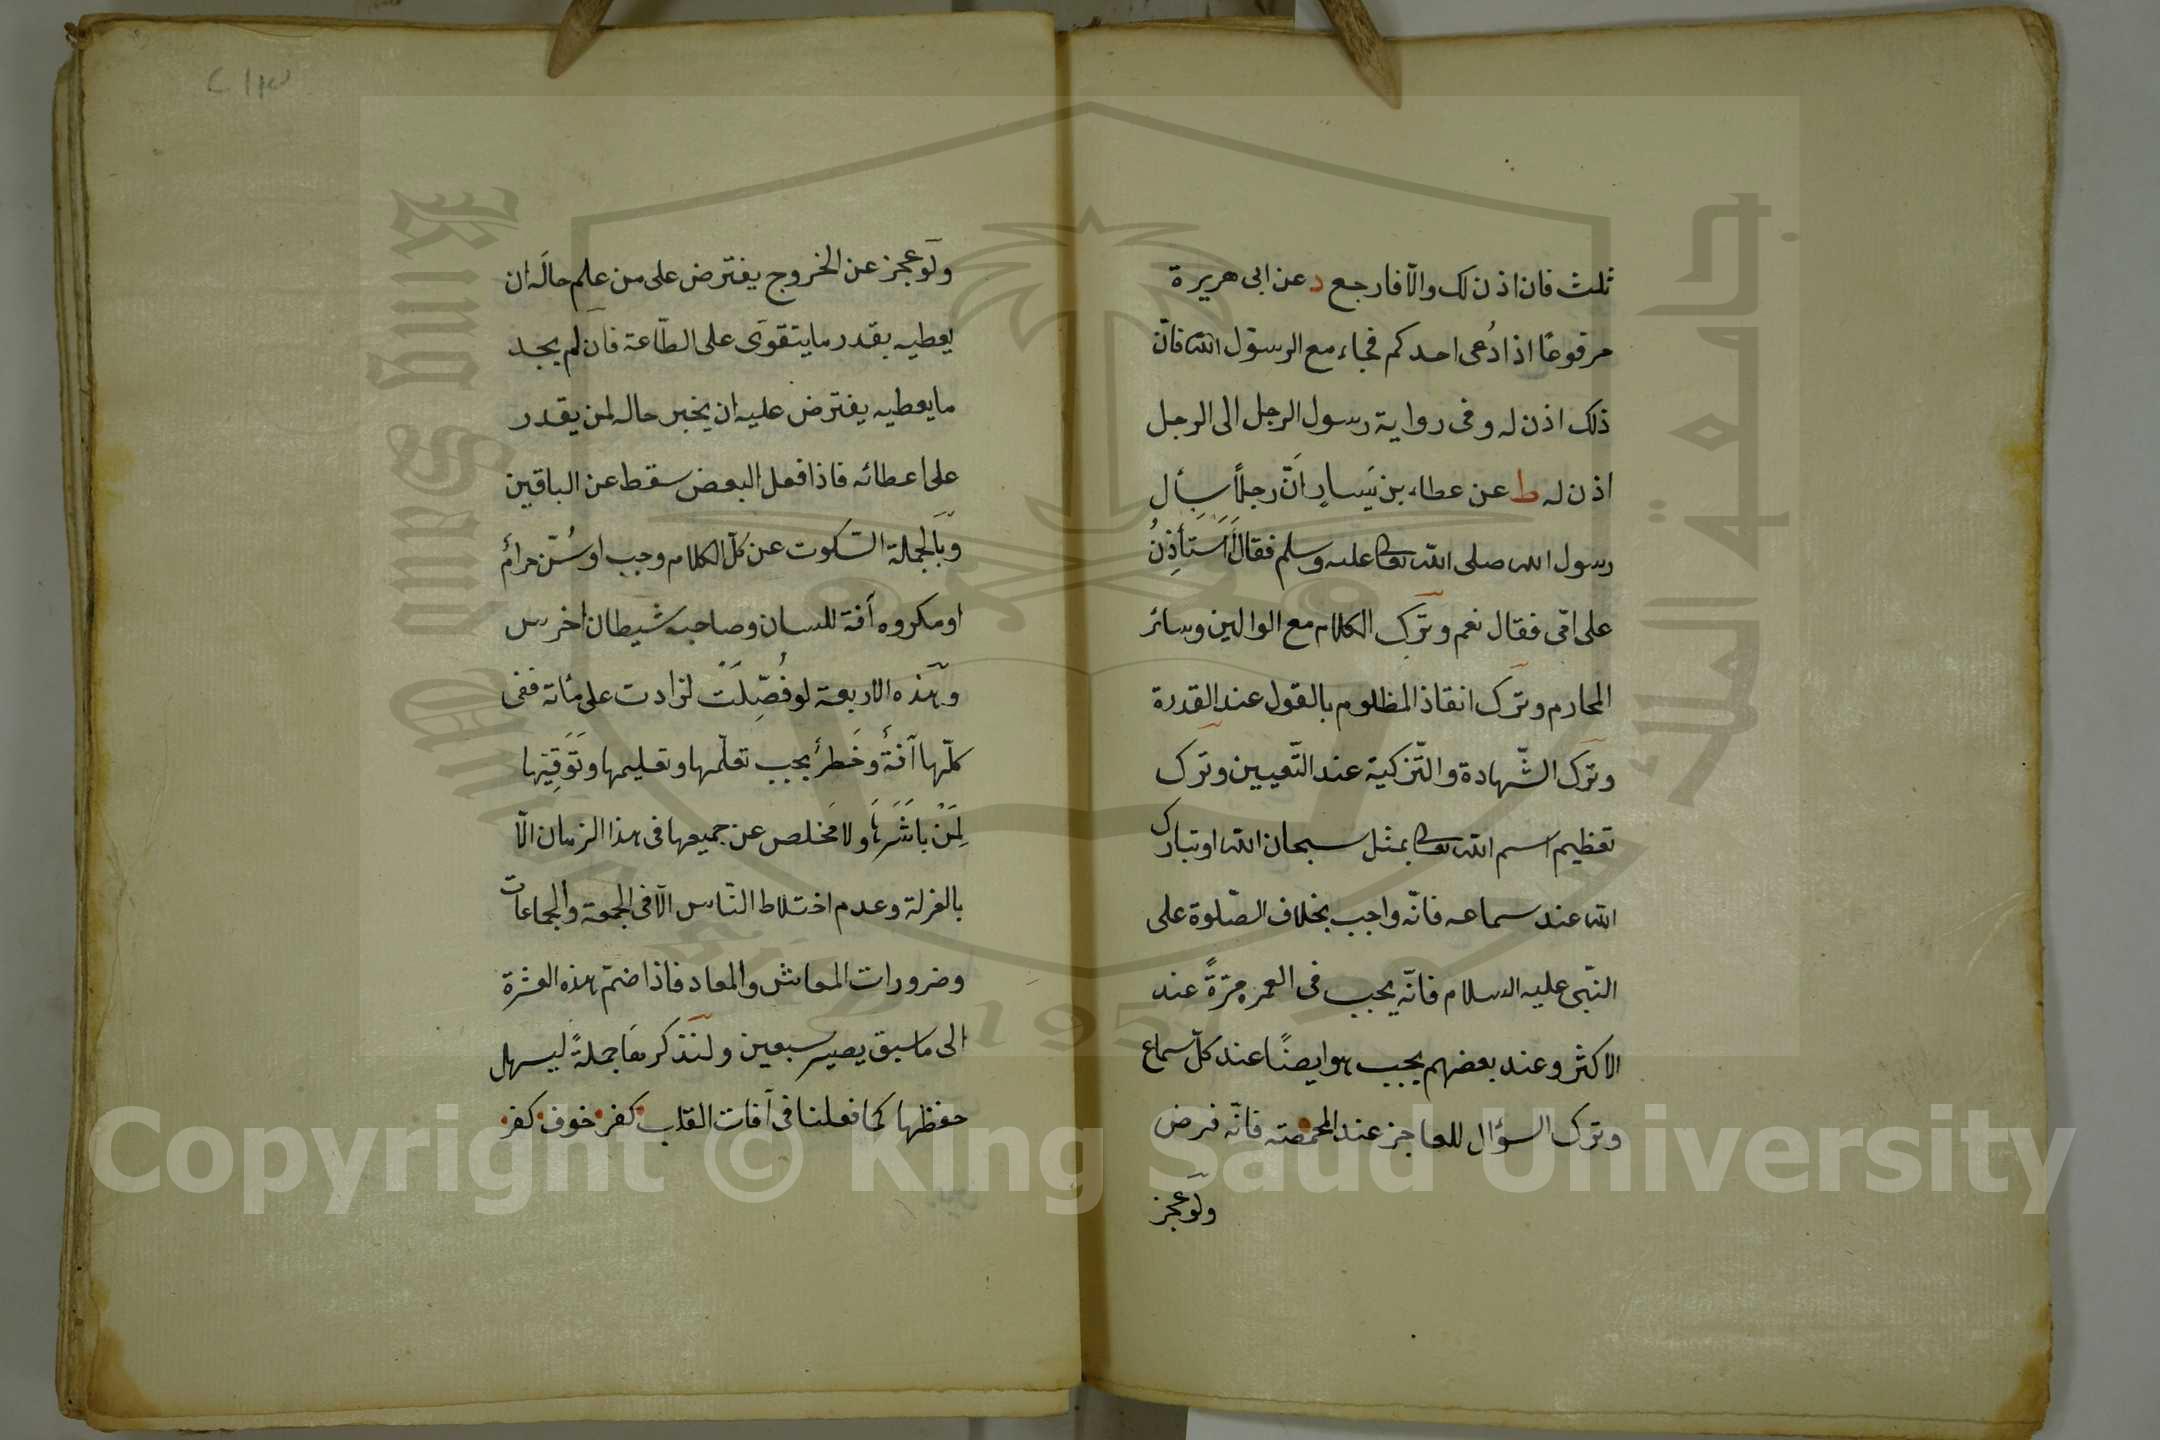 ثلث فان اذن لك والّا فارجع د عن ابى هريرة
مرفوعًا اذا دُعى احدكم فجاء مع الرسول الله فانّ
ذلك اذن له وفى رواية رسول الرجل الى الرجل
اذن له ط عن عطاء بن يَسارٍ انّ رجلًا سأل
رسول الله صلى الله تعالى عليه وسلم فقال أَسَتَأذِنُ
على امّى فقال نعم وترك الكلام مع الوالين وسائر
المحارم وترك انقاذ المظلوم بالقول عند القدرة
وترك الشّهادة والتّزكية عند التّعيين وترك
تعظيم اسم الله تعالى بمثل سبحان الله او تبارك
الله عند سماعه فانّه واجب بخلاف الصّلوة على
النّبى عليه السلام فانّه يجب فى العمر مرّةً عند
الاكثر وعند بعضهم يجب هو ايضًا عند كلّ سماع
وترك السؤال للعاجز عند المخمصة فانّه فرض
ولو عجز
ولو عجز عن الخروج يفترض على من علم حاله ان
يعطيه بقدر ما يتقوى على الطّاعة فان لم يجد
ما يعطيه يفترض عليه ان يخبر حاله لمن يقدر
على اعطائه فاذا فعل البعض سقط عن الباقين
وبالجملة السّكوت عن كلّ الكلام وجب او سُنّ حرام
او مكروه آفة للسان وصاحبه شيطان اخرس
وهذه الاربعة لو فُصِّلَت لزادت على مأتة ففى
كلّها آفةٌ وخَطرٌ يجب تعلّمها وتعليمها وتَوَقِيّها
لِمَنْ باشَرَهَا ولا مَخلص عن جميعها فى هذا الزمان الّا
بالعزلة وعدم اختلاط النّاس الّا فى الجمعة والجماعات
وضرورات المعاش والمعاد فاذا ضمّ هذه العشرة
الى ما سبق يصير سبعين ولنذكرها جملةً ليسهل
حفظها كما فعلنا فى آفات القلب كفر خوف كفر
King Saud University
جامعة الملك سعود
1957
Copyright © King Saud University